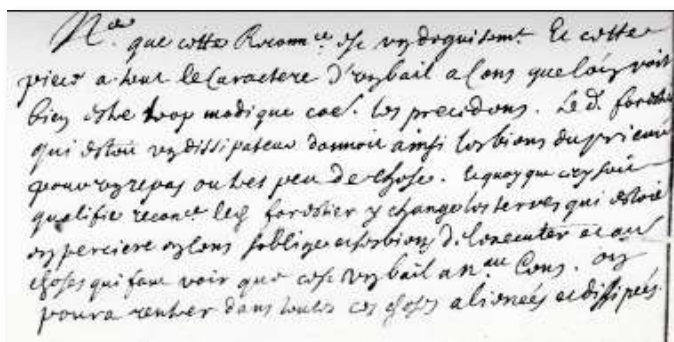 N.a que cette Reconn.ce est un deguisem.t Et cette
piece a tout le Caractere d'un bail a Cens que l'on voit
bien estre trop modique co.e les precedens. Le d. forestier
qui estoit un dissipateur donnoit ainsi les biens du prieuré
pour un repas ou tres peu de chose. Et quoy que cecy soit
qualifié reconce led forestier y change les terres qui estoit
en perciere en cens s'oblige et les biens de l'executer et au
choses qui font voir que cest un bail a n.au Cens. on
poura rentrer dans toutes ces choses alienées et dissipées.